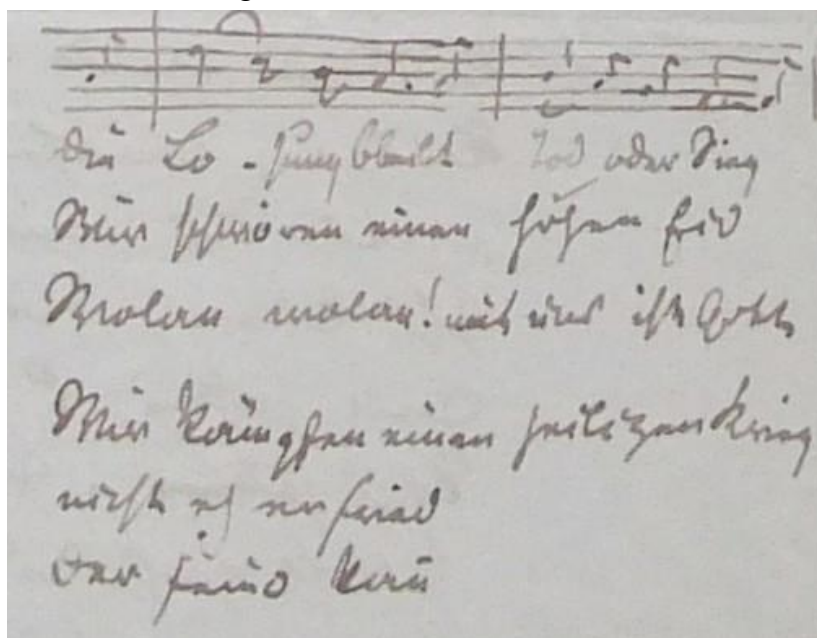 die Lo - sung bleibt Tod oder Sieg
Wir schwören einen hohen Eid
Wolan wolan! mit uns ist Gott
Wir kämpfen einen heilgen Krieg
nicht eh er
der Feind